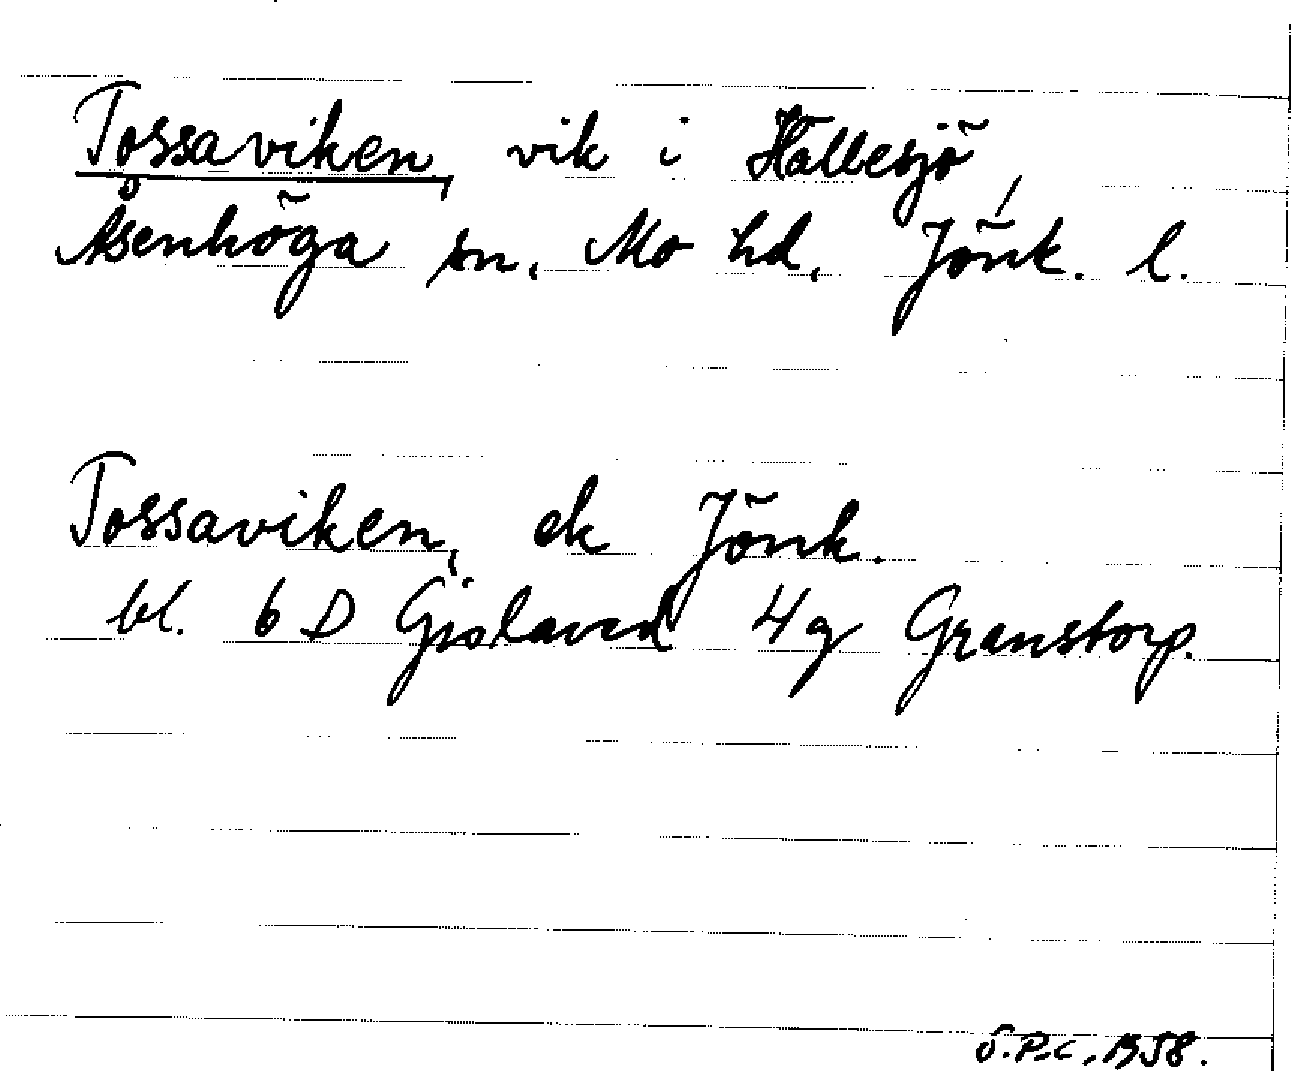 Tossaviken, vik i Hällesjö,
Åsenhöga sn, Mo hd, Jönk. l.
Tossaviken, ek Jönk.
bl. 6 D Gislaved 4g Granstorp.
1958.